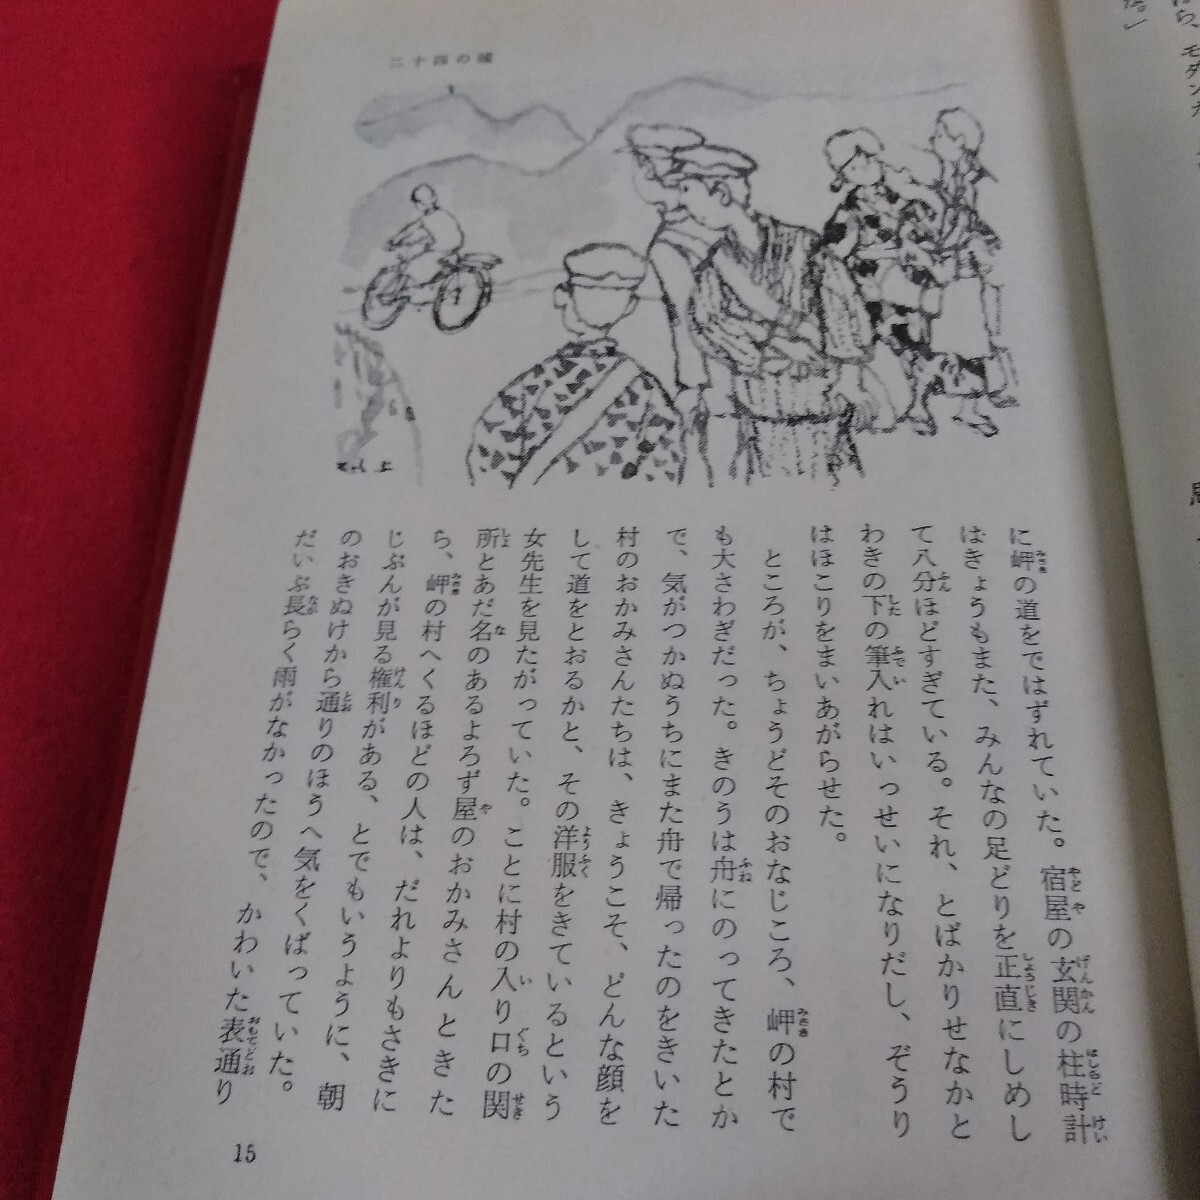 二十四の瞳
に岬の道をではずれていた。宿屋の玄関の柱時計
はきょうもまた、みんなの足どりを正直にしめし
て八分ほどすぎている。それ、とばかりせなかと
わきの下の筆入れはいっせいになりだし、ぞうり
はほこりをまいあがらせた。
ところが、ちょうどそのおなじころ、岬の村で
も大さわぎだった。きのうは舟にのってきたとか
で、気がつかぬうちにまた舟で帰ったのをきいた
村のおかみさんたちは、きょうこそ、どんな顔を
して道をとおるかと、その洋服をきているという
女先生を見たがっていた。ことに村の入り口の関
所とあだ名のあるよろず屋のおかみさんときた
ら、岬の村へくるほどの人は、だれよりもさきに
じぶんが見る権利がある、とでもいうように、朝
のおきぬけから通りのほうへ気をくばっていた。
だいぶ長らく雨がなかったので、かわいた表通り
15